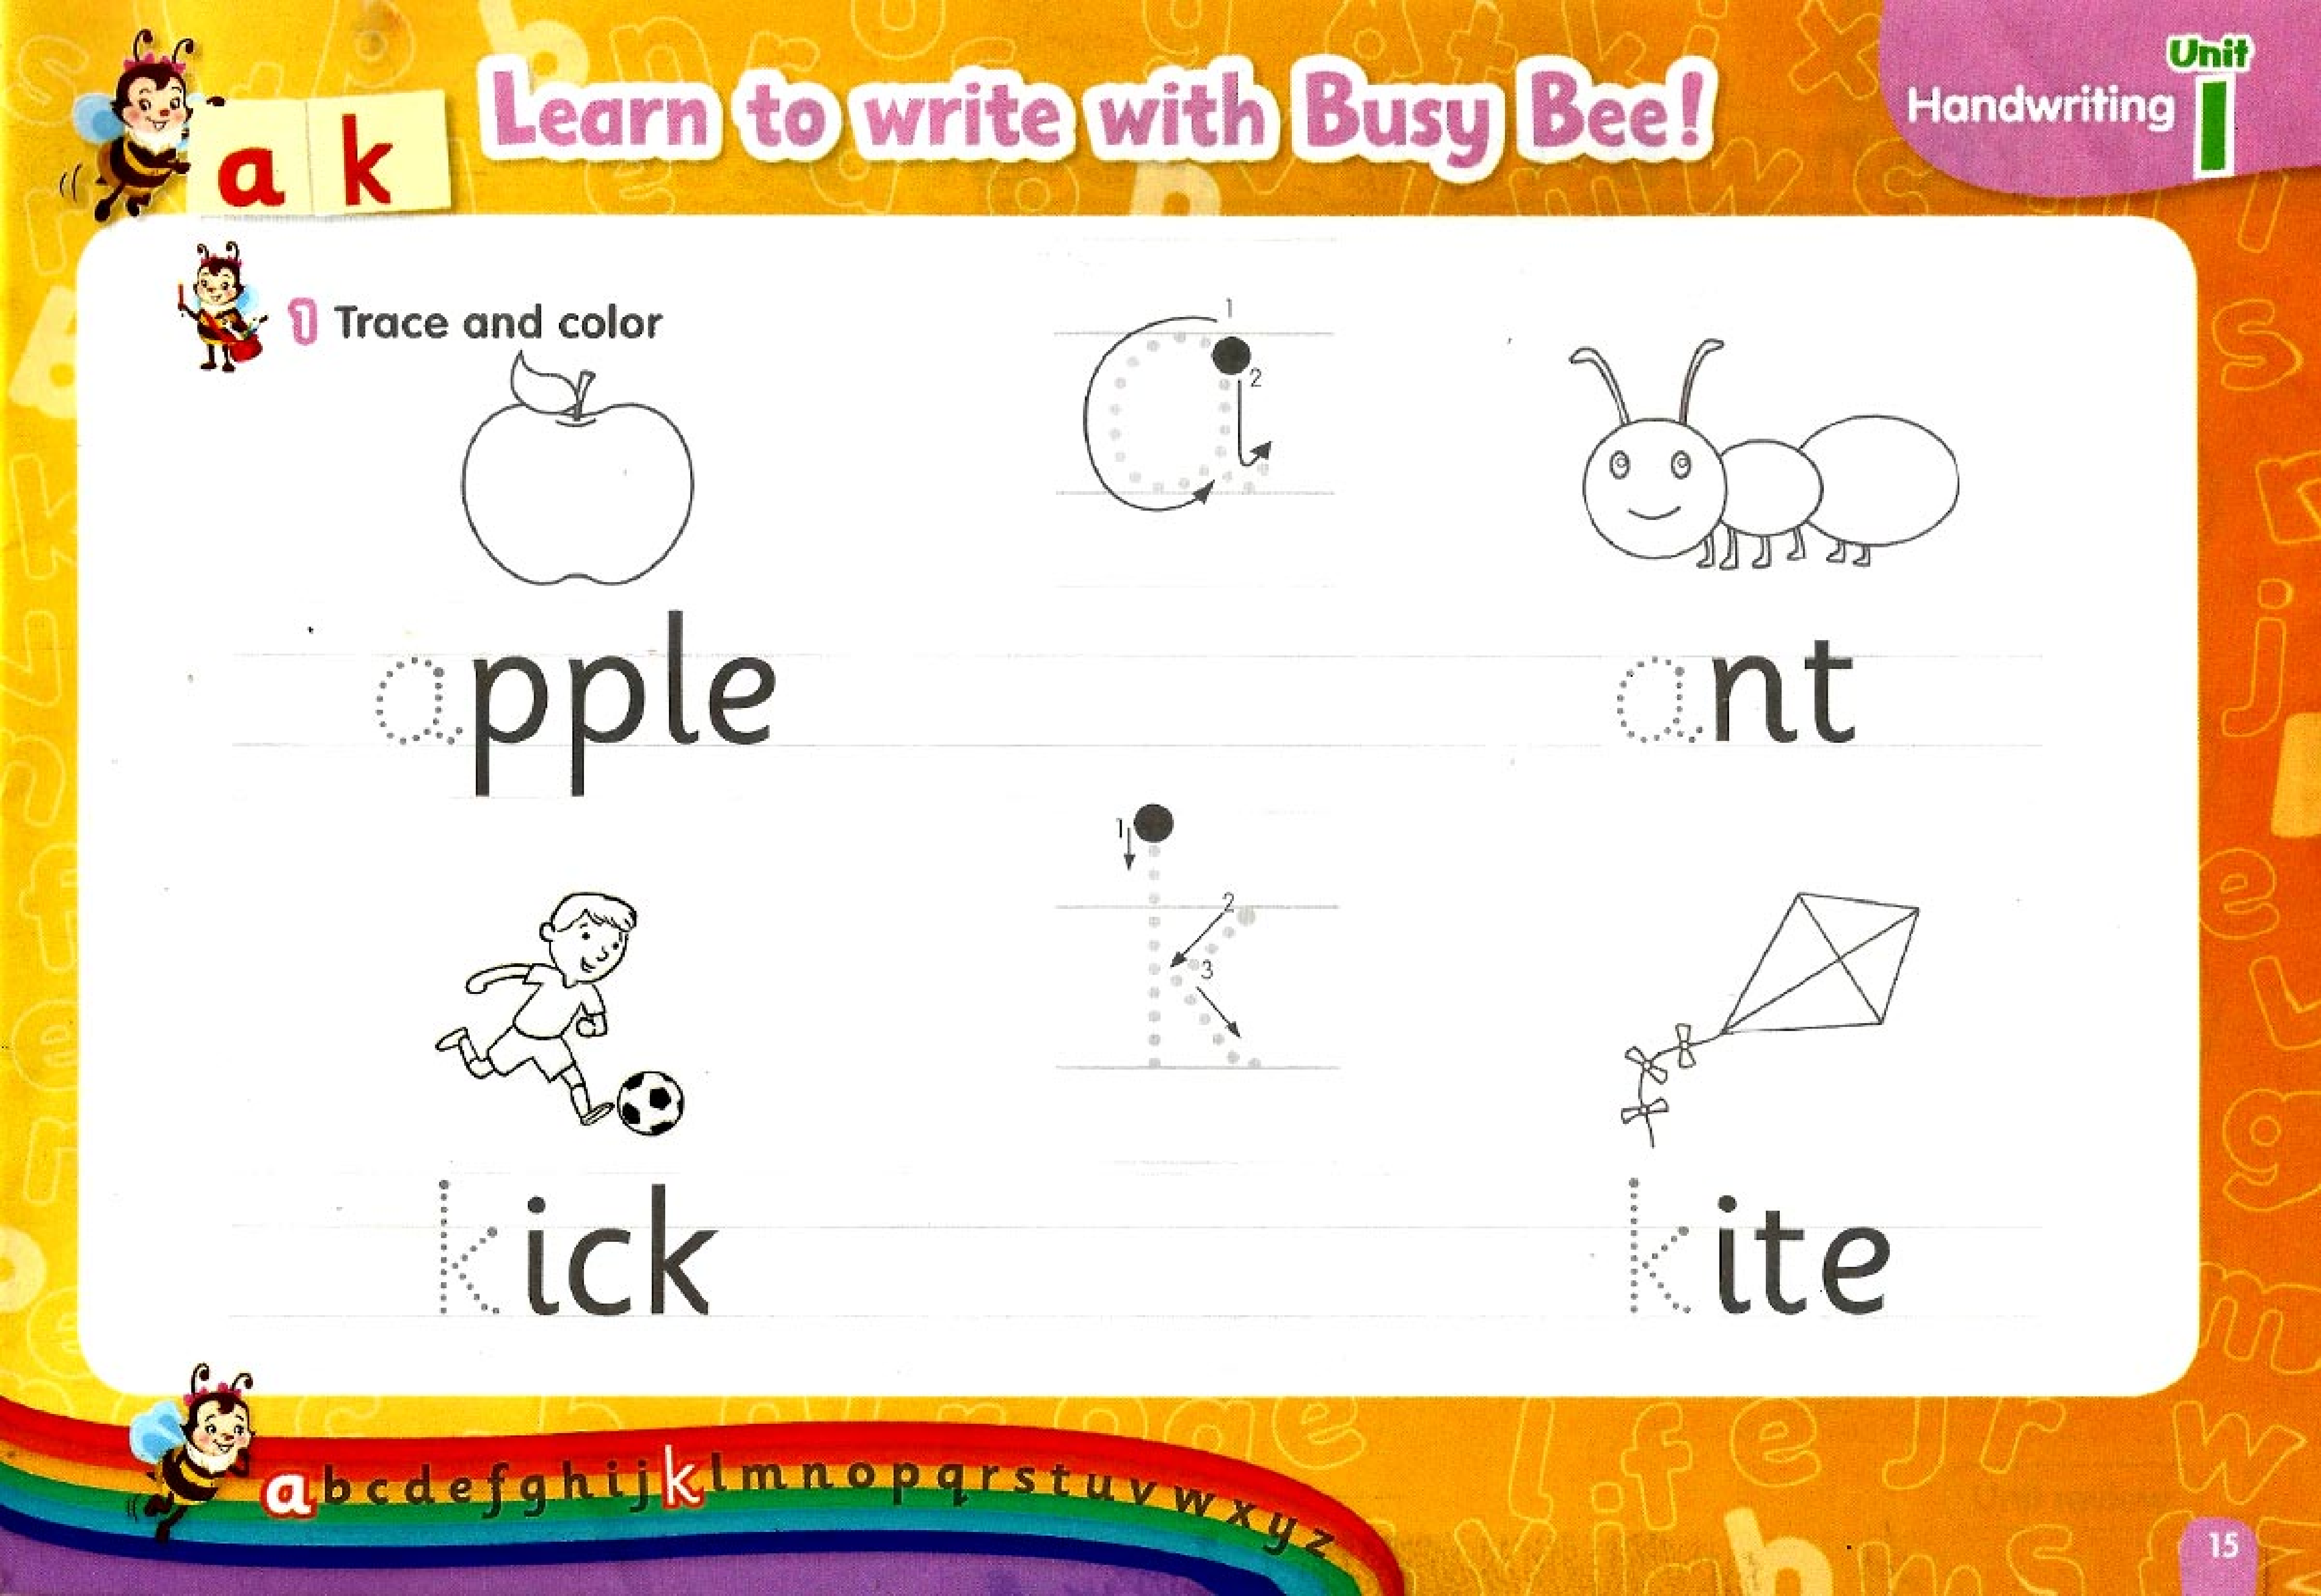 a k
Learn to write with Busy Bee!
Handwriting
Unit
1
1 Trace and color
1
2
a
apple
ant
1
2
3
k
kick
kite
a b c d e f g h i j k l m n o p q r s t u v w x y z
15